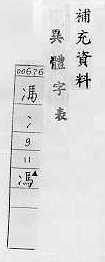 補充資料
異體字表
00676
馮
冫
9
11
馮▲